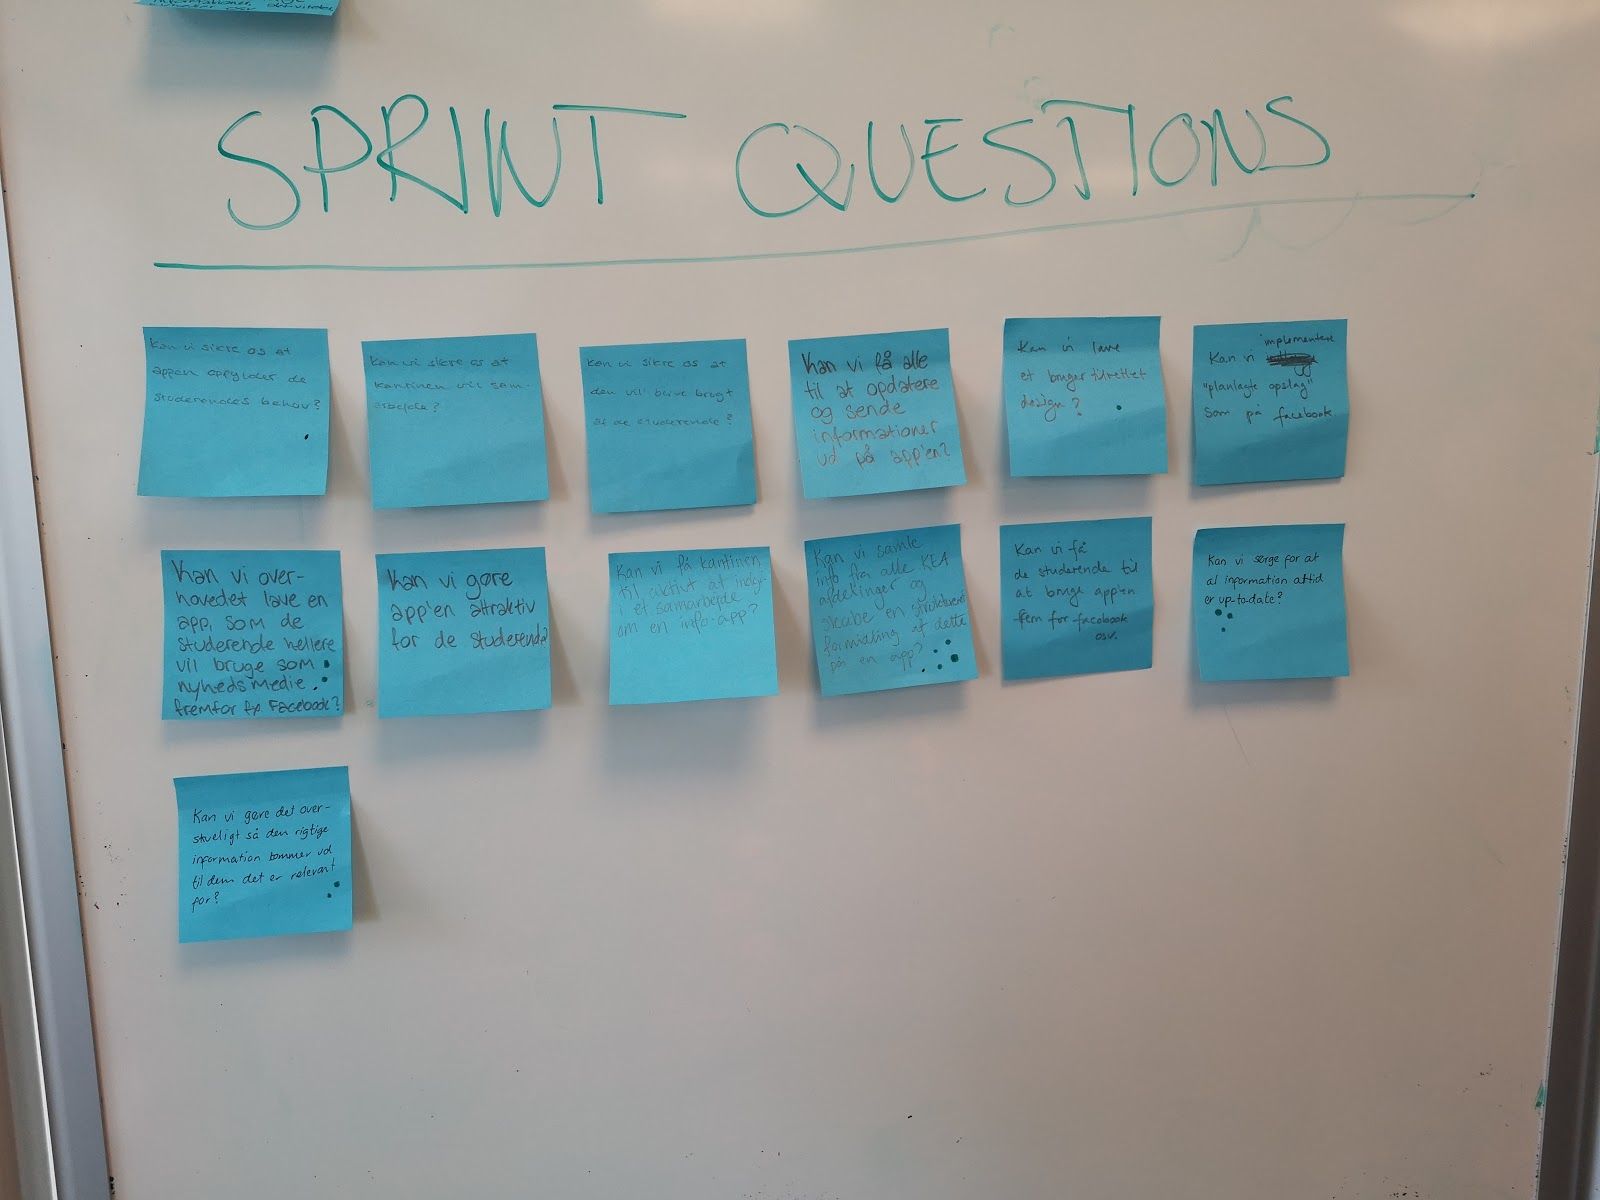 informationer
SPRINT QUESTIONS
Kan vi sikre os at
appen opfylder de
studerendes behov?
Kan vi sikre os at
kantinen vil sam-
arbejde?
Kan vi sikre os at
den vil blive brugt
af de studerende?
Kan vi få alle
til at opdatere
og sende
informationer
ud på app'en?
Kan vi lave
et bruger tilrettet
design?
implementere
Kan vi
"planlagte opslag"
som på facebook
Kan vi over-
hovedet lave en
app, som de
studerende hellere
vil bruge som
nyhedsmedie
fremfor fx Facebook?
Kan vi gøre
app'en attraktiv
for de studerende?
Kan vi få kantinen
til aktivt at indgå
i et samarbejde
om en info-app?
Kan vi samle
info fra alle KEA
afdelinger og
skabe en struktureret
formidling af dette
på en app?
Kan vi få
de studerende til
at bruge app'en
frem for facebook
osv.
Kan vi sørge for at
al information altid
er up-to-date?
Kan vi gøre det over-
skueligt så den rigtige
information kommer ud
til dem det er relevant
for?